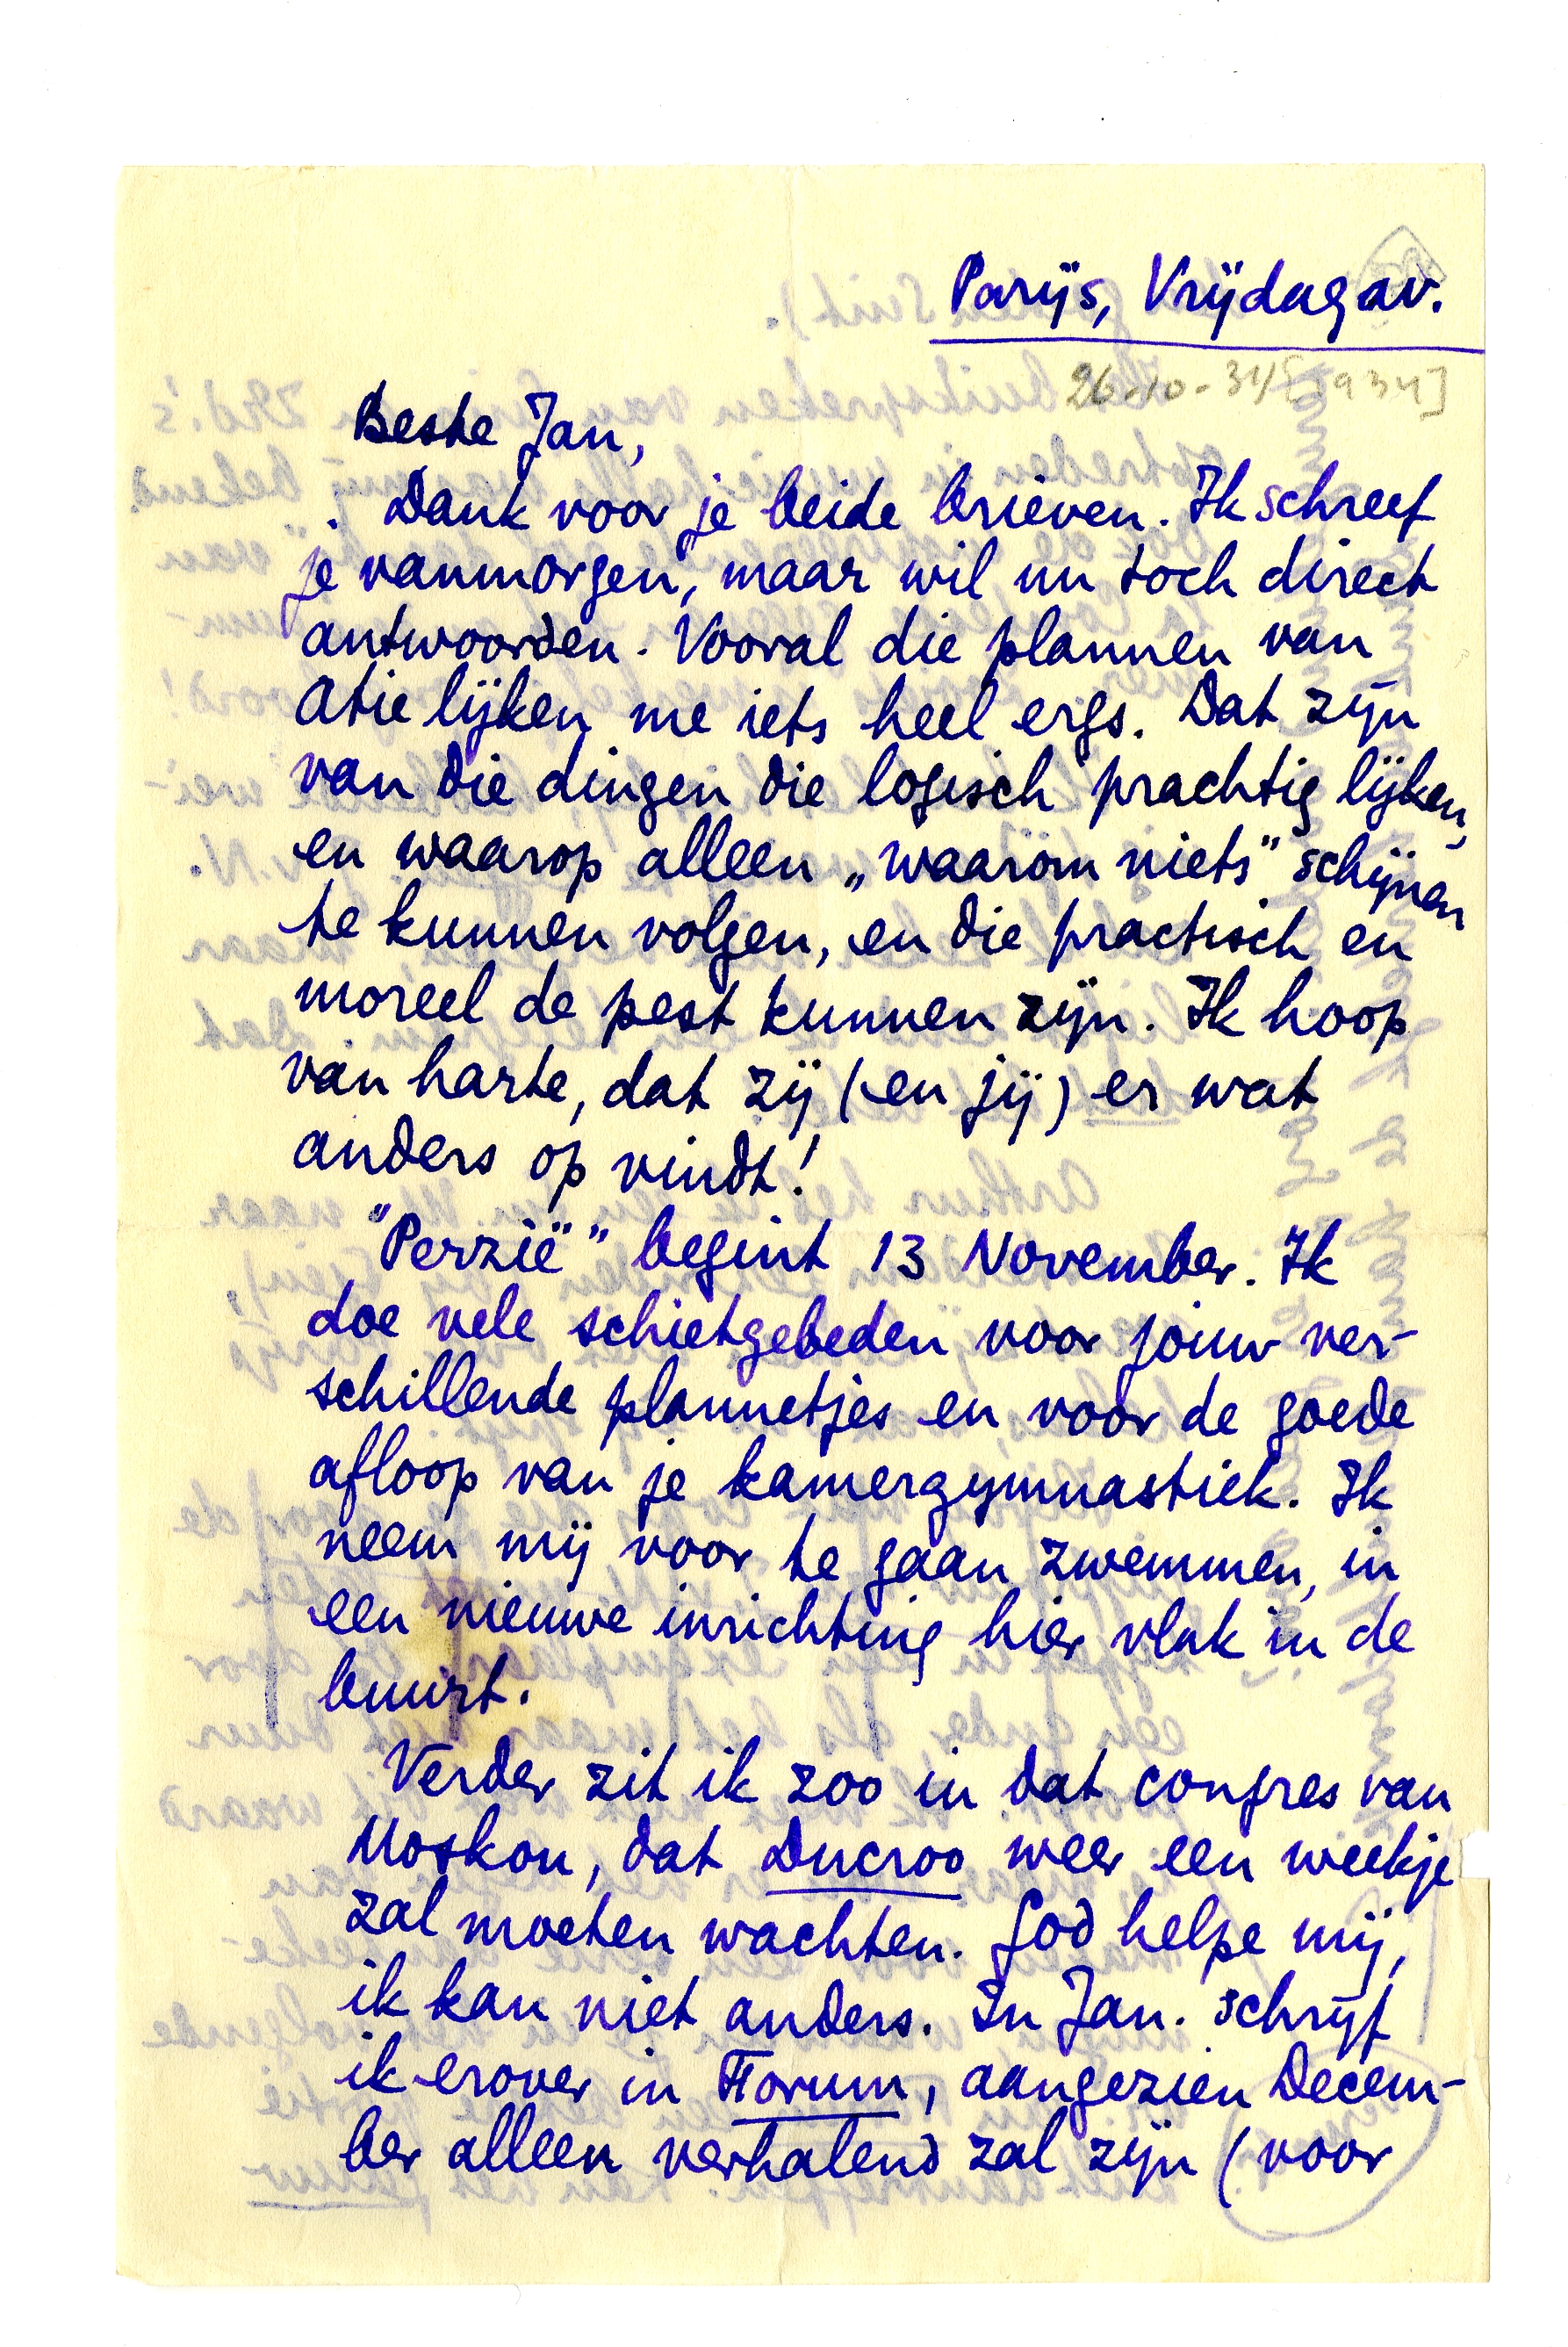 Parijs, Vrijdag av.
26-10-34 [1934]
Beste Jan,
Dank voor je beide brieven. Ik schreef
je vanmorgen, maar wil nu toch direct
antwoorden. Vooral die plannen van
Atie lijken me iets heel ergs. Dat zijn
van die dingen die logisch prachtig lijken,
en waarop alleen „waarom niets" schijnen
te kunnen volgen, en die practisch en
moreel de pest kunnen zijn. Ik hoop
van harte, dat zij (en jij) er wat
anders op vindt!
"Perzië" begint 13 November. Ik
doe vele schietgebeden voor jouw ver-
schillende plannetjes en voor de goede
afloop van je kamergymnastiek. Ik
neem mij voor te gaan zwemmen, in
een nieuwe inrichting hier vlak in de
buurt.
Verder zit ik zoo in dat congres van
Moskou, dat Ducroo weer een weekje
zal moeten wachten. God helpe mij,
ik kan niet anders. In Jan. schrijf
ik erover in Forum, aangezien Decem-
ber alleen verhalend zal zijn (voor